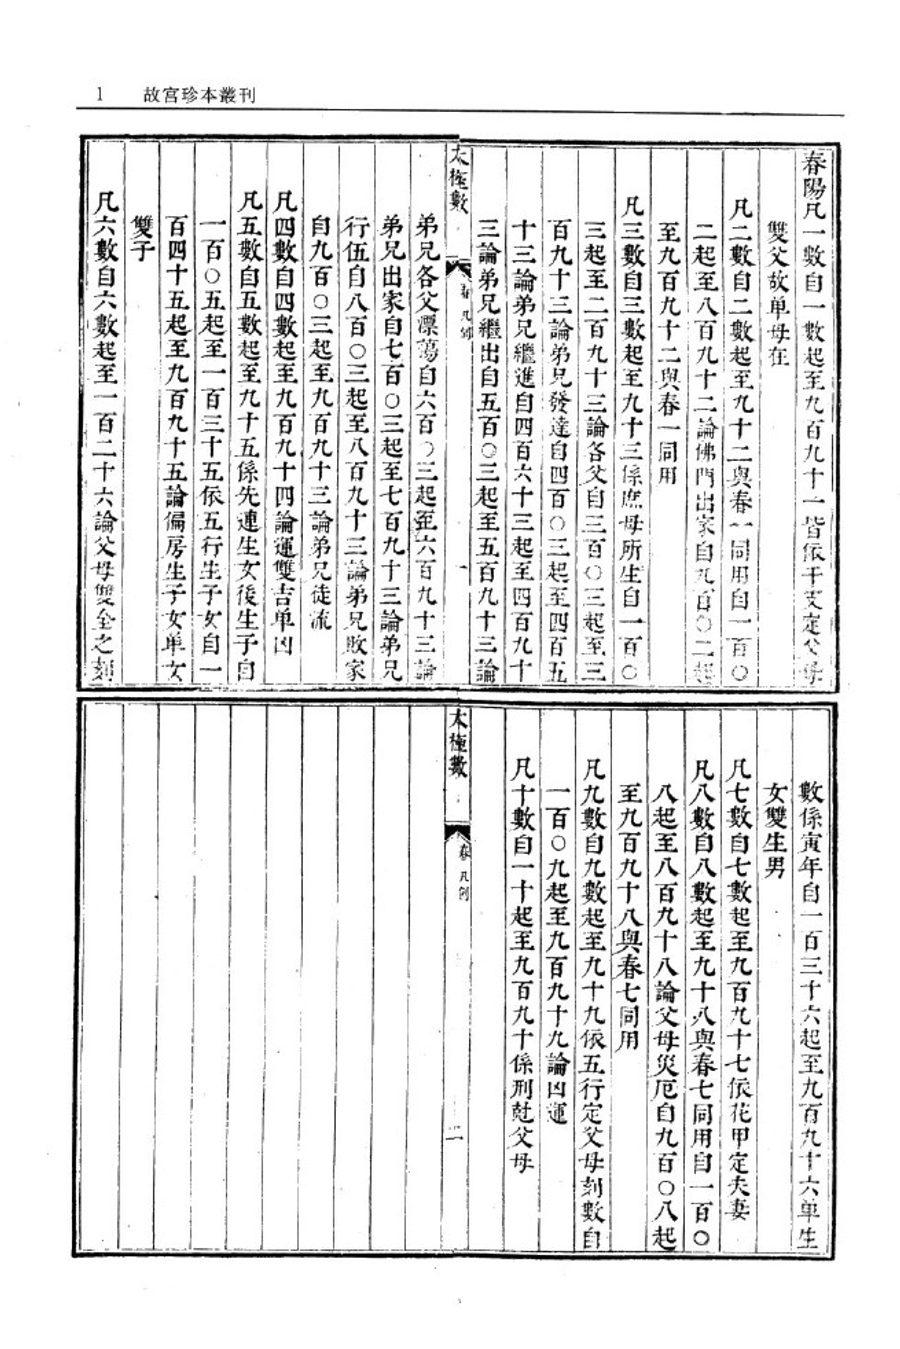 1 故宮珍本叢刊
春陽凡一數自一數起至九百九十一皆依干支定父母
雙父故単母在
凡二數自二數起至九十二與春一同用自一百〇
二起至八百九十二論佛門出家自九百〇二起
至九百九十二與春一同用
凡三數自三數起至九十三係庶母所生自一百〇
三起至二百九十三論各父自三百〇三起至三
百九十三論弟兄發達自四百〇三起至四百五
十三論弟兄繼進自四百六十三起至四百九十
三論弟兄繼出自五百〇三起至五百九十三論
太極數 春 凡例 一
弟兄各父漂蕩自六百〇三起至六百九十三論
弟兄出家自七百〇三起至七百九十三論弟兄
行伍自八百〇三起至八百九十三論弟兄敗家
自九百〇三起至九百九十三論弟兄徒流
凡四數自四數起至九百九十四論運雙吉単凶
凡五數自五數起至九十五係先連生女後生子自
一百〇五起至一百三十五依五行生子女自一
百四十五起至九百九十五論偏房生子女単女
雙子
凡六數自六數起至一百二十六論父母雙全之刻
數係寅年自一百三十六起至九百九十六単生
女雙生男
凡七數自七數起至九百九十七依花甲定夫妻
凡八數自八數起至九十八與春七同用自一百〇
八起至八百九十八論父母災厄自九百〇八起
至九百九十八與春七同用
凡九數自九數起至九十九依五行定父母刻數自
一百〇九起至九百九十九論凶運
凡十數自一十起至九百九十係刑尅父母
太極數 春 凡例 二